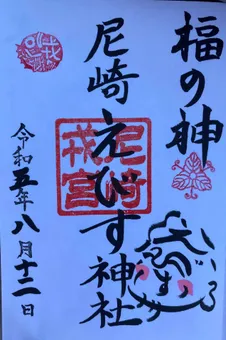 福の神
尼崎えびす神社
尼崎戎宮
令和五年八月十二日